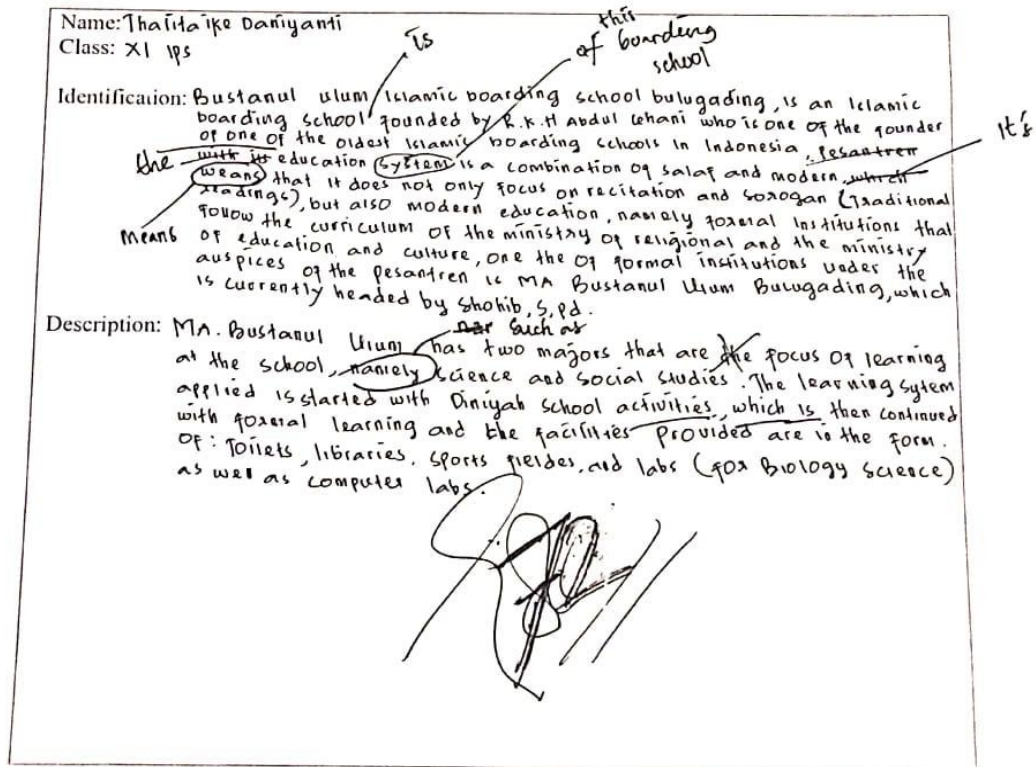 Name: Thalita ike Daniyanti
Class: XI IPS
is
of this boarding school
Identification: Bustanul Ulum Islamic boarding school bulugading, is an Islamic
boarding school founded by R.K.H Abdul Ghani who is one of the founder
of one of the oldest Islamic boarding schools in Indonesia, Pesantren
It's
the with its education system is a combination of salaf and modern, which
means that it does not only focus on recitation and sorogan (Traditional
readings), but also modern education, namely formal Institutions that
means
follow the curriculum of the ministry of religional and the ministry
of education and culture, one the of formal institutions under the
auspices of the pesantren is MA Bustanul Ulum Bulugading, which
is currently headed by Shohib, S.Pd.
such as
Description: MA. Bustanul Ulum has two majors that are the focus of learning
at the school, namely science and social studies. The learning sytem
applied is started with Diniyah School activities, which is then continued
with formal learning and the facilities provided are in the form.
of: Toilets, libraries, sports fieldes, and labs (for Biology science)
as well as computer labs.